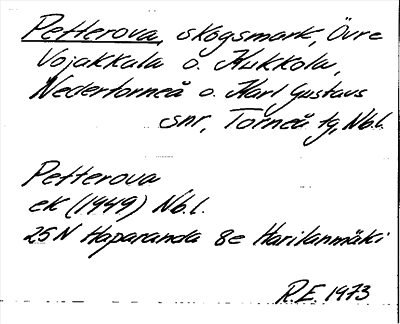 Petterova, skogsmark, Övre
Vojakkala o. Kukkola,
Nedertorneå o. Karl Gustavs
snr, Torneå tg, Nb.l.
Petterova
ek (1949) Nb.l.
25N Haparanda 8e Harilanmäki
R.E. 1973